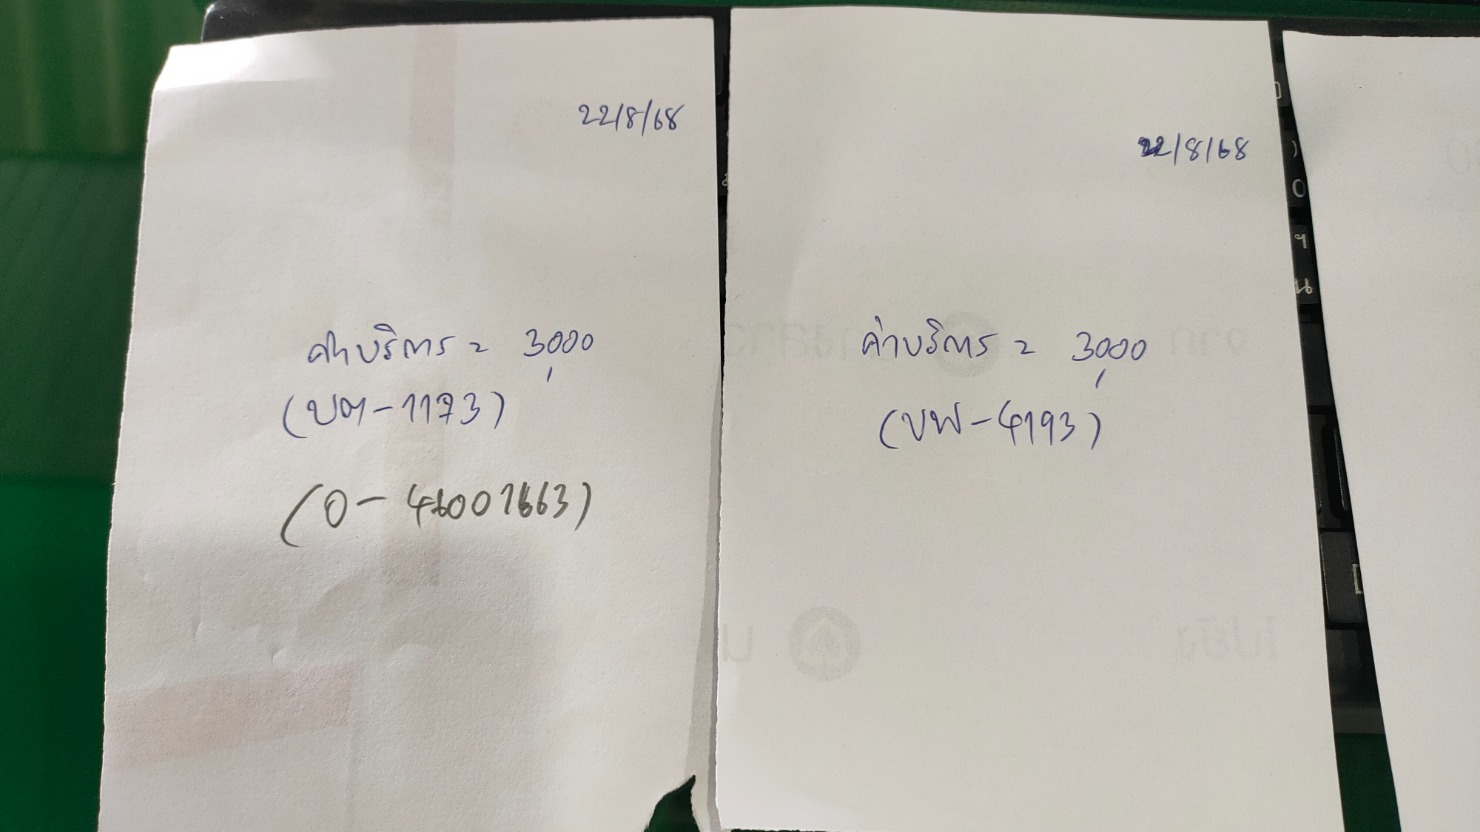 22/8/68
ค่าบริการ = 3,000
(บต-1173)
(0-46001663)
22/8/68
ค่าบริการ = 3,000
(บพ-4193)